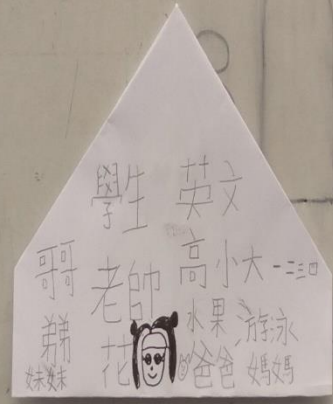 學生 英文
哥哥 老帥 高小大一二三口
弟弟 花 水果 游泳
妹妹 爸爸 媽媽